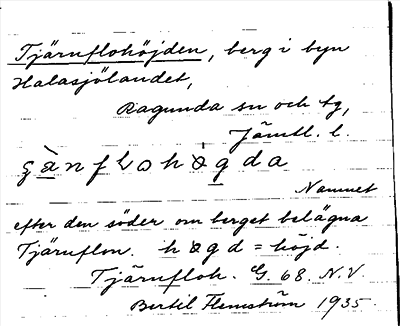 Tjärnflohöjden, berg i byn
Halasjölandet,
Ragunda sn och tg,
Jämtl. l.
gànfLohȯgda
Namnet
efter den söder om berget belägna
Tjärnflon. høgd = höjd.
Tjärnfloh. G. 68 N.V.
Bertil Flemström 1935.